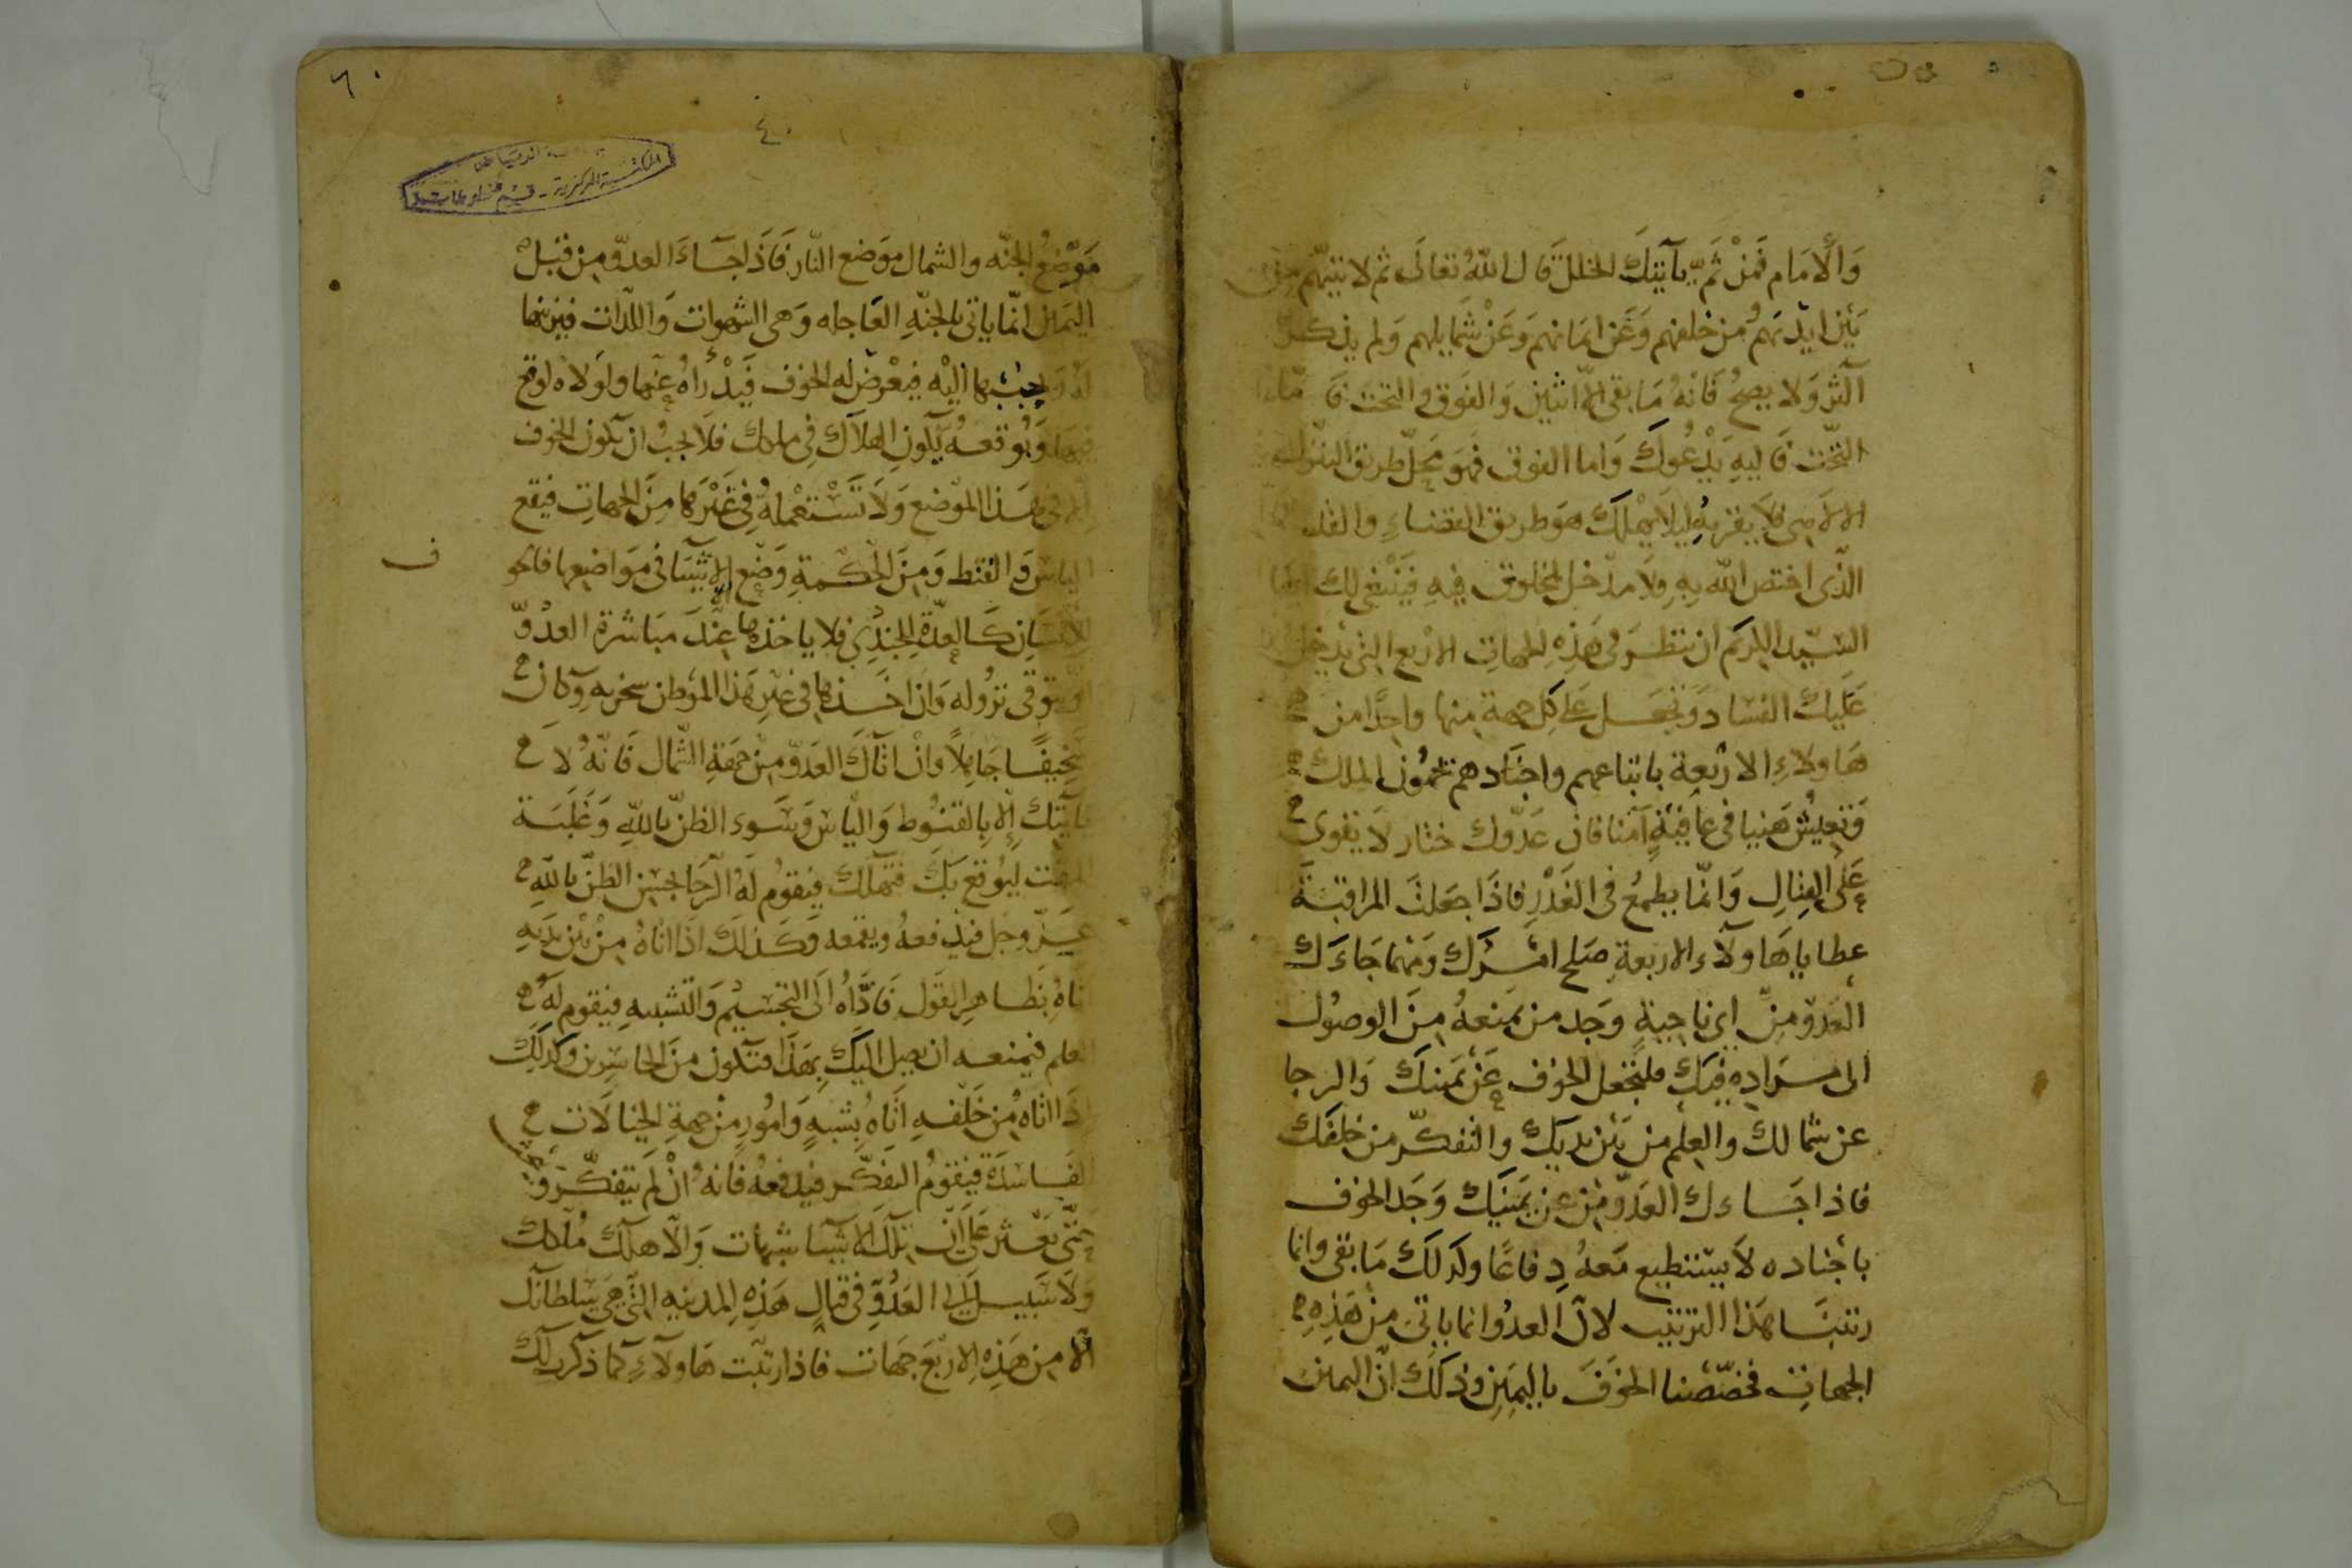 وَالأمَام فَمِنْ ثَمَّ يَأتيكَ الخلل قَال اللهُ تعَالَى ثم لاتينهم من
بَيْن ايدِيهم ومن خلفهم وَعَن ايمَانهم وَعَنْ شمَايلهم وَلم يذكر
اكثر وَلا يصحُ فَانهُ مَا بقى الا اثنين وَالفَوق والتحت فَاما
التّحت فَاليهِ يَدْعُوكَ وَاما الفوق فهوَ محَلّ طريق التنزلات
الالاهى فلا يقربه ليلا يهْلك هوَ طريق القضاءِ والقدر
الذى اختص الله بهِ ولَا مدخل لمخلوق فيهِ فيَنْبغى لك ايها
السَيّد الكريم ان تنظرَ فى هَذِهِ الجهاتِ الاربع التى يدخل
عَليكَ الفسَاد وَتجعَل عَلى كل جهة منها واحِدًا من
هَاولاءِ الاربَعة باتباعهم واجنَادهم يحمُون الملك
وَتعيشُ هَنيا فى عَافيَةٍ آمنا فان عَدّوك ختار لَا يقوى
عَلى القتالِ وَانمّا يطمعُ فى الغَدْرِ فاذا جعلتَ المراقبَةَ
عطايا هَاولآء الاربعةِ صَلح امْرك ومَهما جَاءَك
العَدوّ مِن اى ناحيةٍ وَجد من يمنعهُ مِنَ الوصُول
الى مرَادِه فيك فلتجعل الخوف عَنْ يَمينكَ وَالرجا
عن شمالك والعِلم من بَين يديك والتفكر من خلفك
فاذا جَاءك العَدوّ مِن عن يَمينكَ وَجَد الخوف
باجْناده لَا يسْتطيع معهُ دِفاعًا وكذلكَ مَا بقى وانما
رتبنَا هَذا الترتيب لانّ العدوُ انما ياتى من هَذِهِ
الجهاتِ فخصّصْنا الخوَفَ باليمِين وذلكَ انّ اليمين
٦٠
٤٠
المكتبة المركزية - قسم المخطوطات
مَوضعُ الجنّه والشمال موَضع النّار فَاذَا جآءَ العدوّ مِن قبَل
اليَمين انّما ياتى بالجنّةِ العَاجله وَهى الشهوات وَاللّذات فيزينها
لهُ وَيحببُ بها اليْه فيعْرض له الخوف فَيدْرَاهُ عنها ولوَلاه لوقع
فيهَا وَبوُقوعهُ يكون الهلاك فى ملكك فلَا يجبُ ان يكون الخوف
الا فى هَذا الموضع وَلَا تَسْتعْملهُ فى غَيرهَا مِنَ الجهاتِ فيقع
الياس وَالقنط وَمِنَ الحكمةِ وَضْع الاشيَا فى مَوَاضعها فالخو
ف
للانسَان كالعدّةِ للجندِى فلا ياخذها عنْدَ مبَاشرة العدُوّ
او يتوقى نزوله وَان اخذها فى غير هَذا الموَطن سخر به وكان
سَخيفًا جَاهِلًا وان اتاك العَدوّ مِنْ جهةِ الشّمال فَانهُ لا
يَاتيك إلا بِالقنوط وَالياس وسَوء الظنّ باللهِ وَغَلَبة
المقت ليوُقع بك فتهلك فيقومُ لهُ الرّجا بحسن الظنّ باللهِ
عَزّ وجل فيدفعهُ ويقمعه وَكذلك اذا اتاهُ مِنْ بَيْن يديهِ
اتاهُ بظاهِر القول فَادّاهُ الى التجسيْم وَالتشبيهِ فيقوم لهُ
العلم فيمنعه ان يصل اليك بهَذَا فتكون منَ الخاسِرين وكذلك
اذَا اتاهُ مِن خَلْفهِ اتاهُ بشبهٍ وَامُورٍ مِنْ جهةِ الخيالَات
الفَاسدَة فيَقومُ التفكر فيدفعهُ فانهُ انْ لَم يتفكر وَ
حَتى يَعْثر عَلى انّ تلك الاشيَا شبهات وَالا هلك مُلكك
وَلَا سَبيل الى العَدُوّ فى قتال هَذهِ المدينهِ التى هى سلطانك
الا مِن هَذِهِ الاربَعَ جهات فاذا رتبت هَاولآءِ كما ذكرت لك